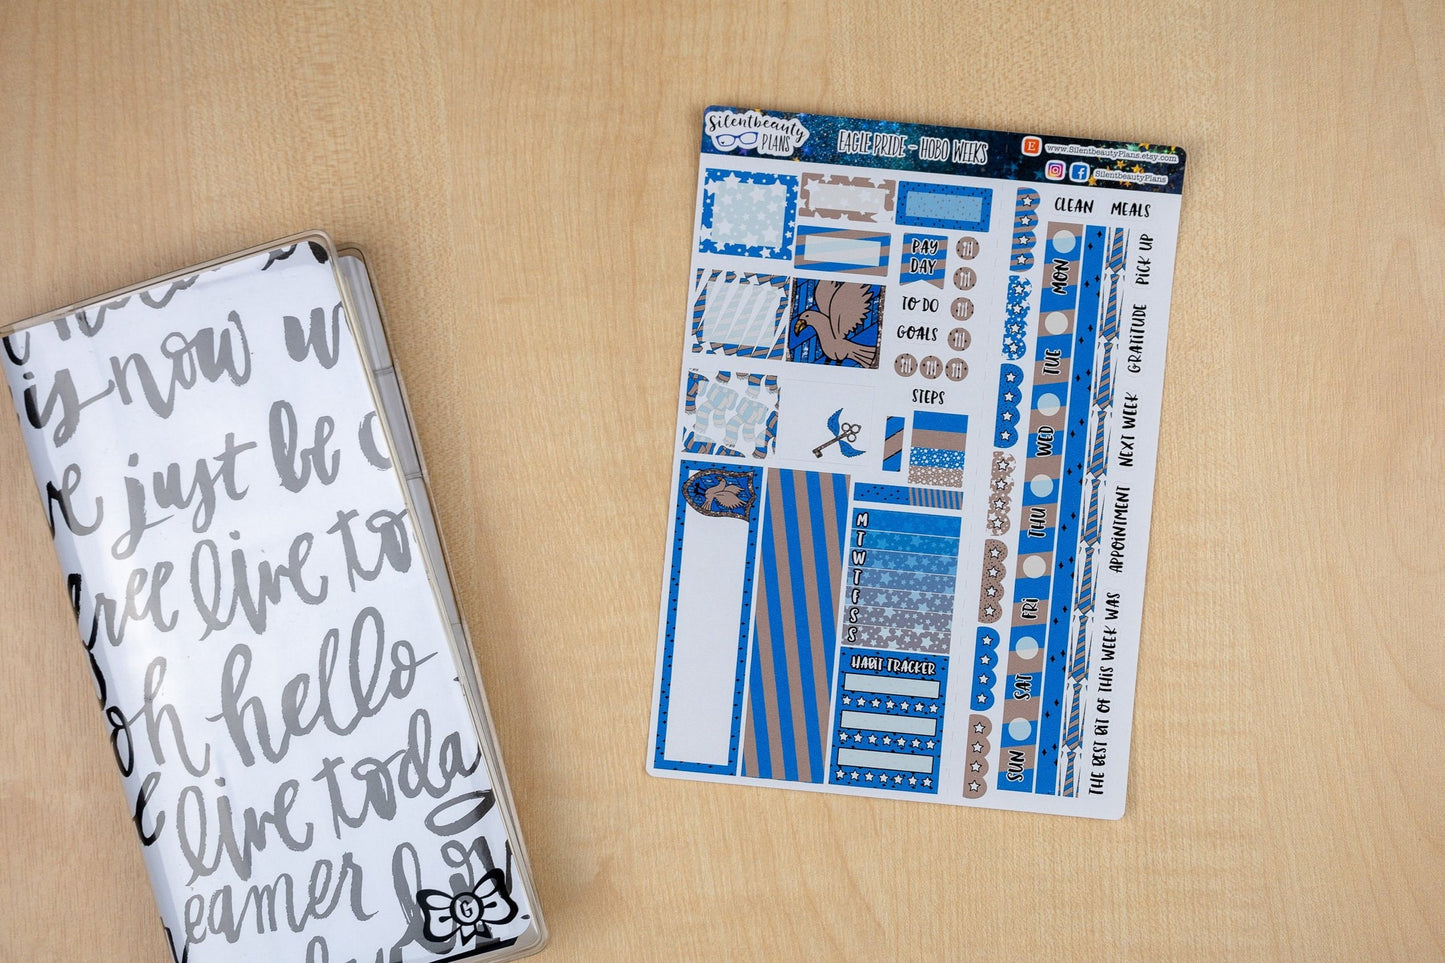 is now
just be
free live to
oh hello
live today
eamer
G
Silentbeauty
PLANS
EAGLE PRIDE - HOBO WEEKS
E
www.SilentbeautyPlans.etsy.com
f
SilentbeautyPlans
CLEAN MEALS
PAY
DAY
TO DO
GOALS
STEPS
M
T
W
T
F
S
S
HABIT TRACKER
MON
TUE
WED
THU
FRI
SAT
SUN
PICK UP
GRATITUDE
NEXT WEEK
APPOINTMENT
THE BEST BIT OF THIS WEEK WAS